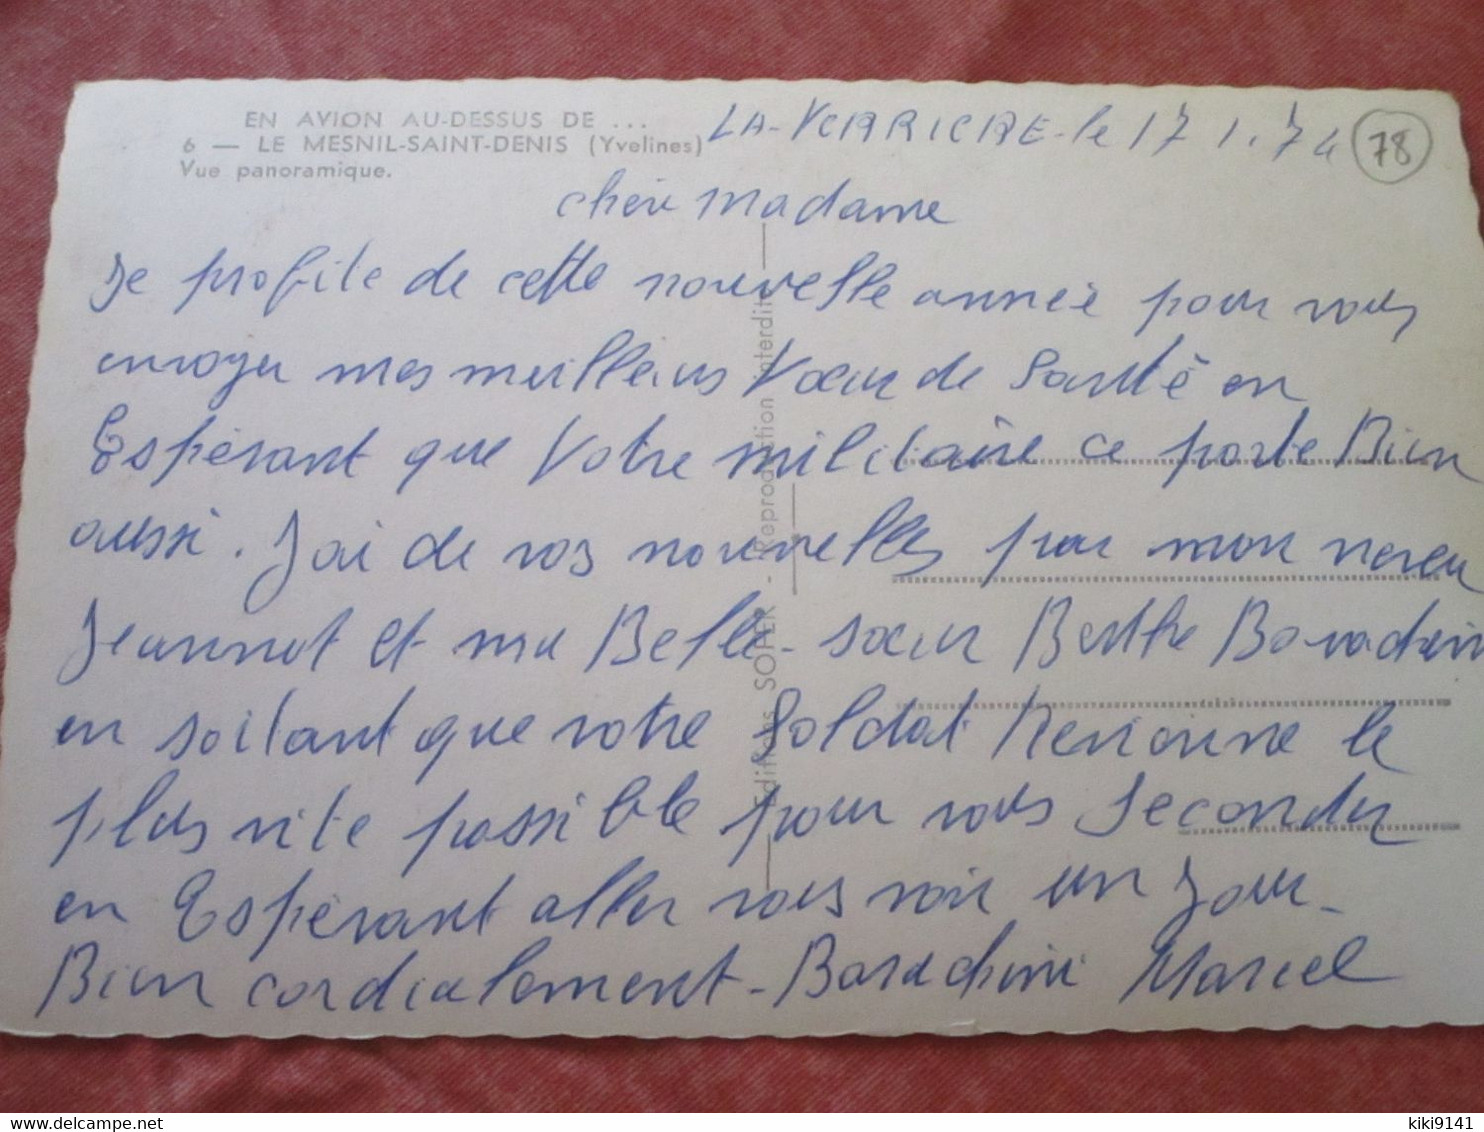 EN AVION AU-DESSUS DE ...
6 — LE MESNIL-SAINT-DENIS (Yvelines)
Vue panoramique.
LA-VERRIERE-le 17 1.74
78
chère Madame
Je profite de cette nouvelle année pour vous
envoyer mes meilleurs Vœux de Santé en
Espérant que Votre militaire ce porte Bien
aussi. J'ai de vos nouvelles par mon neveu
Jeannot et ma Belle-sœur Berthe
en soitant que votre Soldat Revienne le
plus vite possible pour vous Seconder
en Espérant aller vous voir un Jour-
Bien cordialement- Marcel
Editions SOFER - Reproduction interdite
delcampe.net
kiki9141